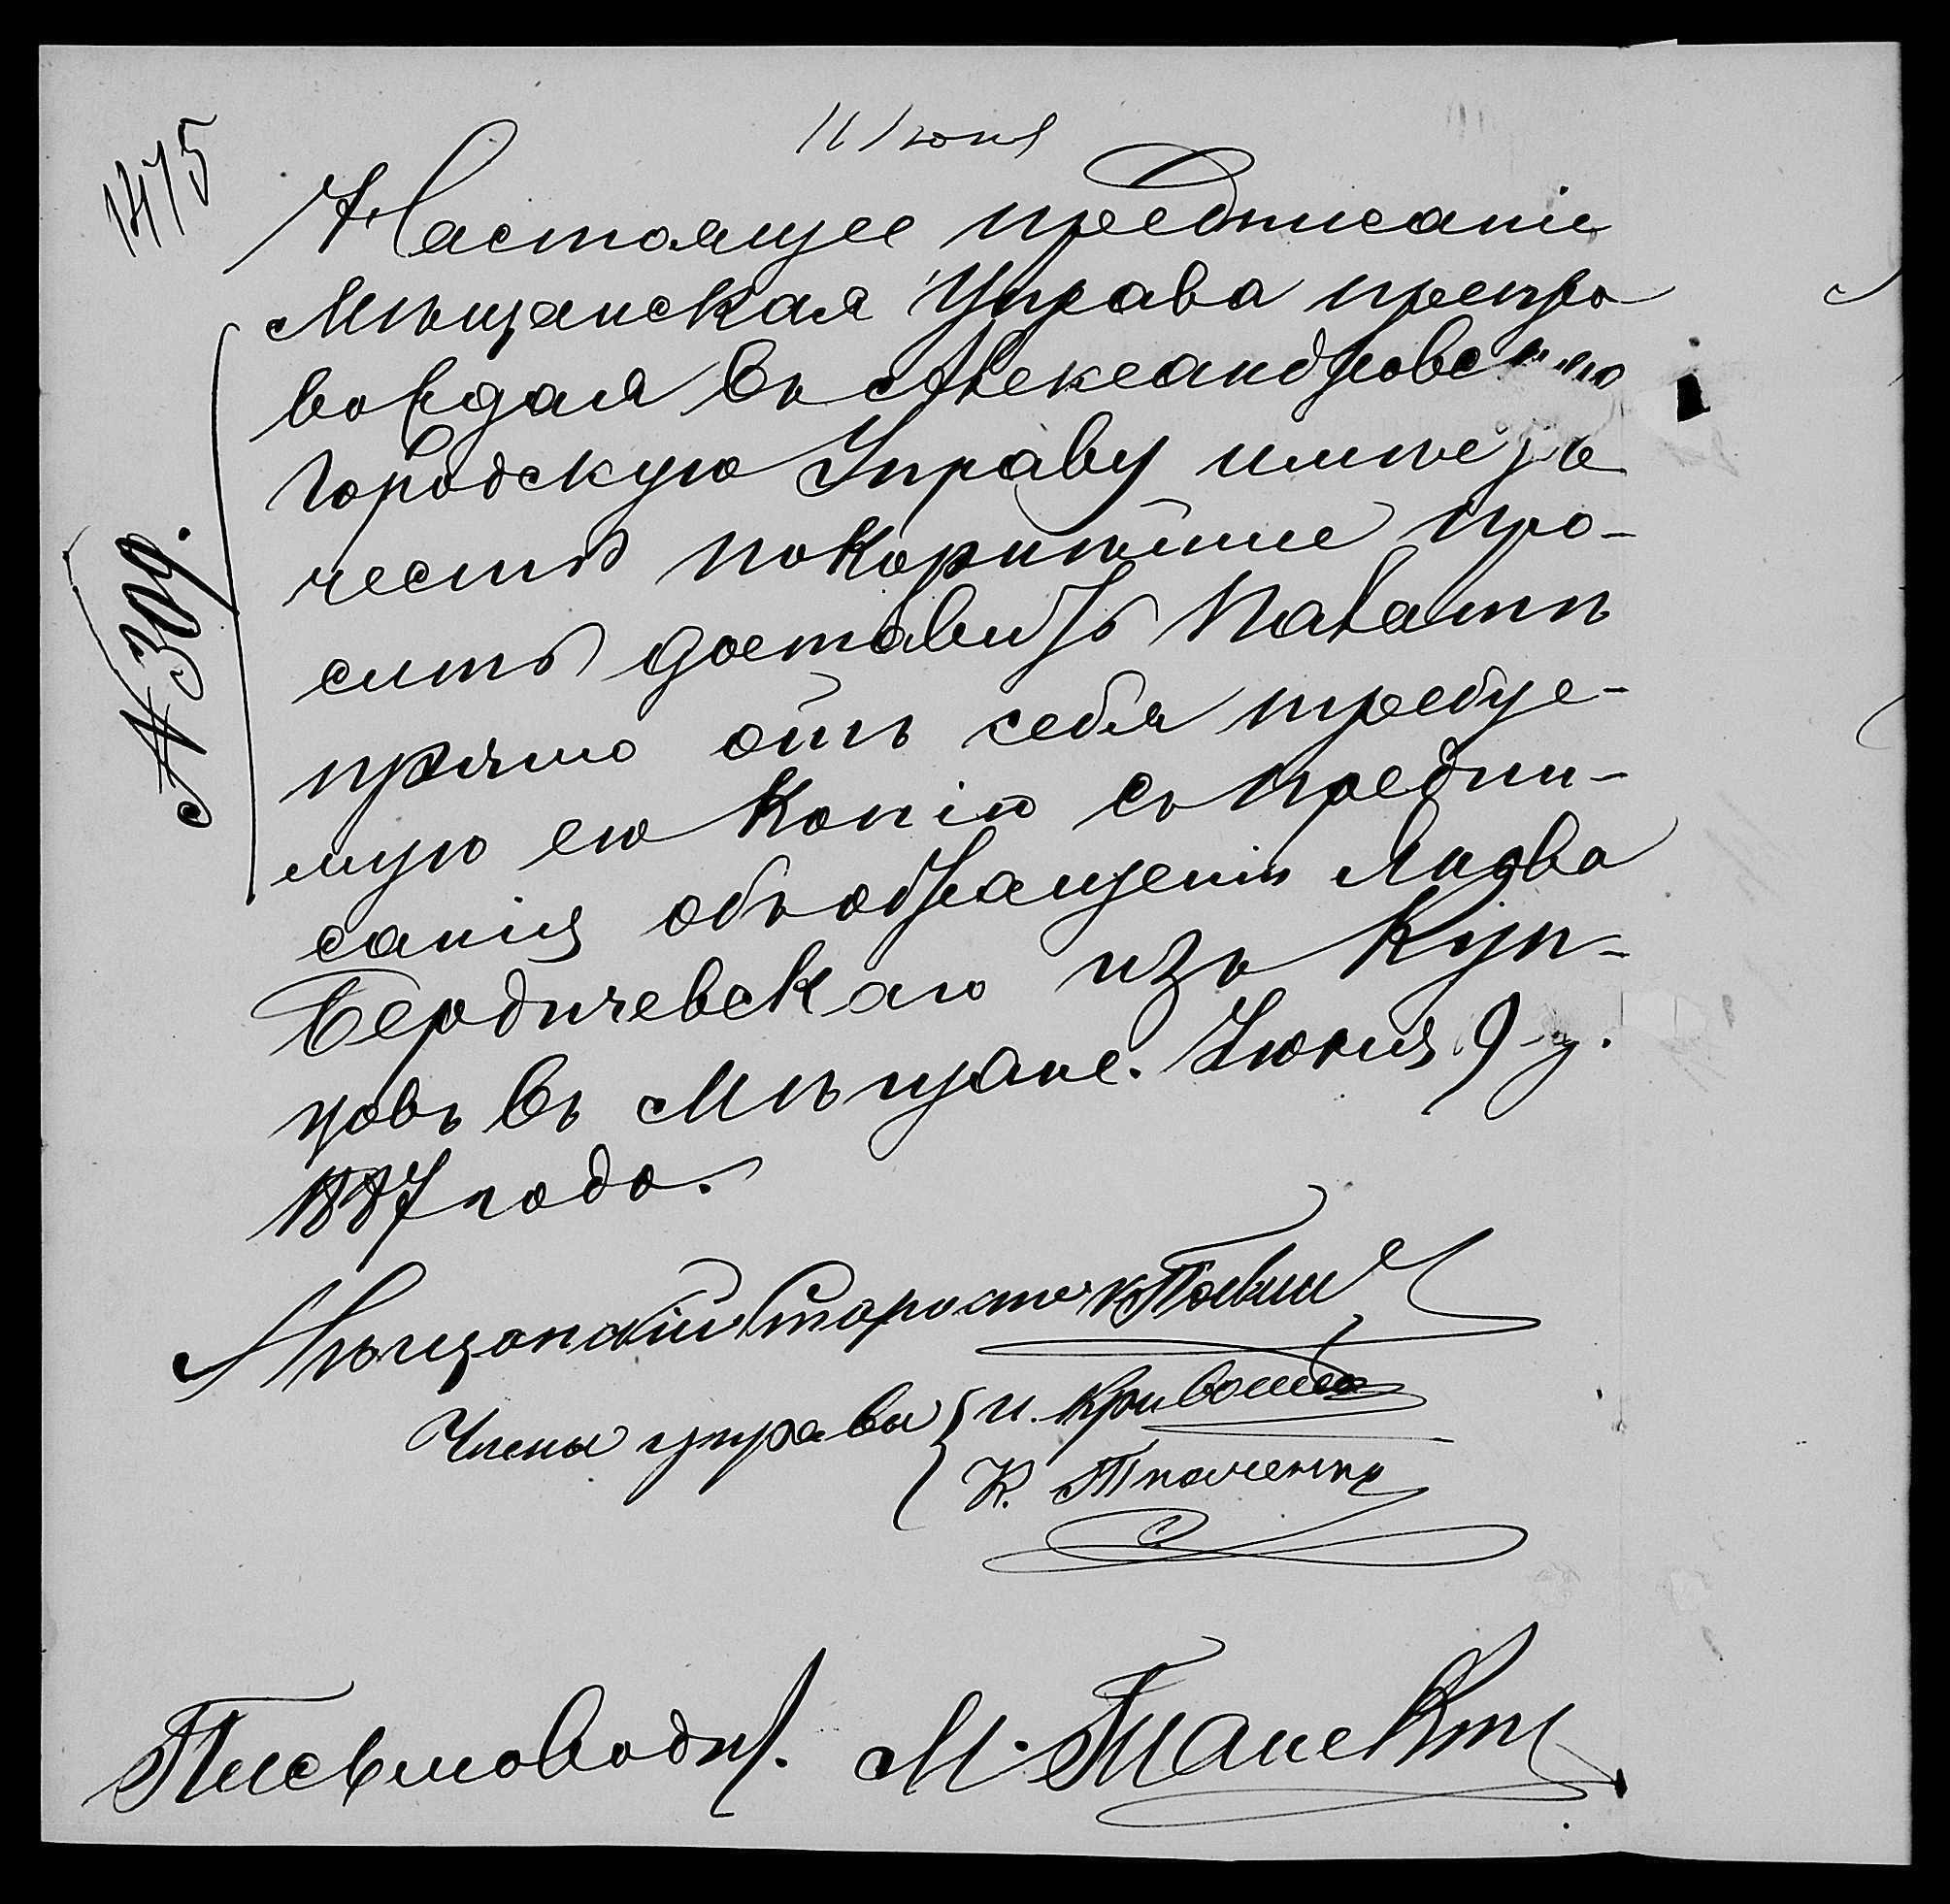 1475
11 Іюня
№ 309.
Настоящее предписаніе
Мѣщанская Управа препро
вождая въ Александровскую
Городскую Управу имѣетъ
честь покорнѣйше про-
сить доставить Палатѣ
прямо отъ себя требуе-
мую ею копію съ предпи-
санія объ обращеніи
Бердичевскаго изъ Куп-
цовъ въ Мѣщане. Іюня 9 д.
1887 года.
Мѣщанскій Староста
Члены управы И.
К. Ткаченко
Письмоводит. М.